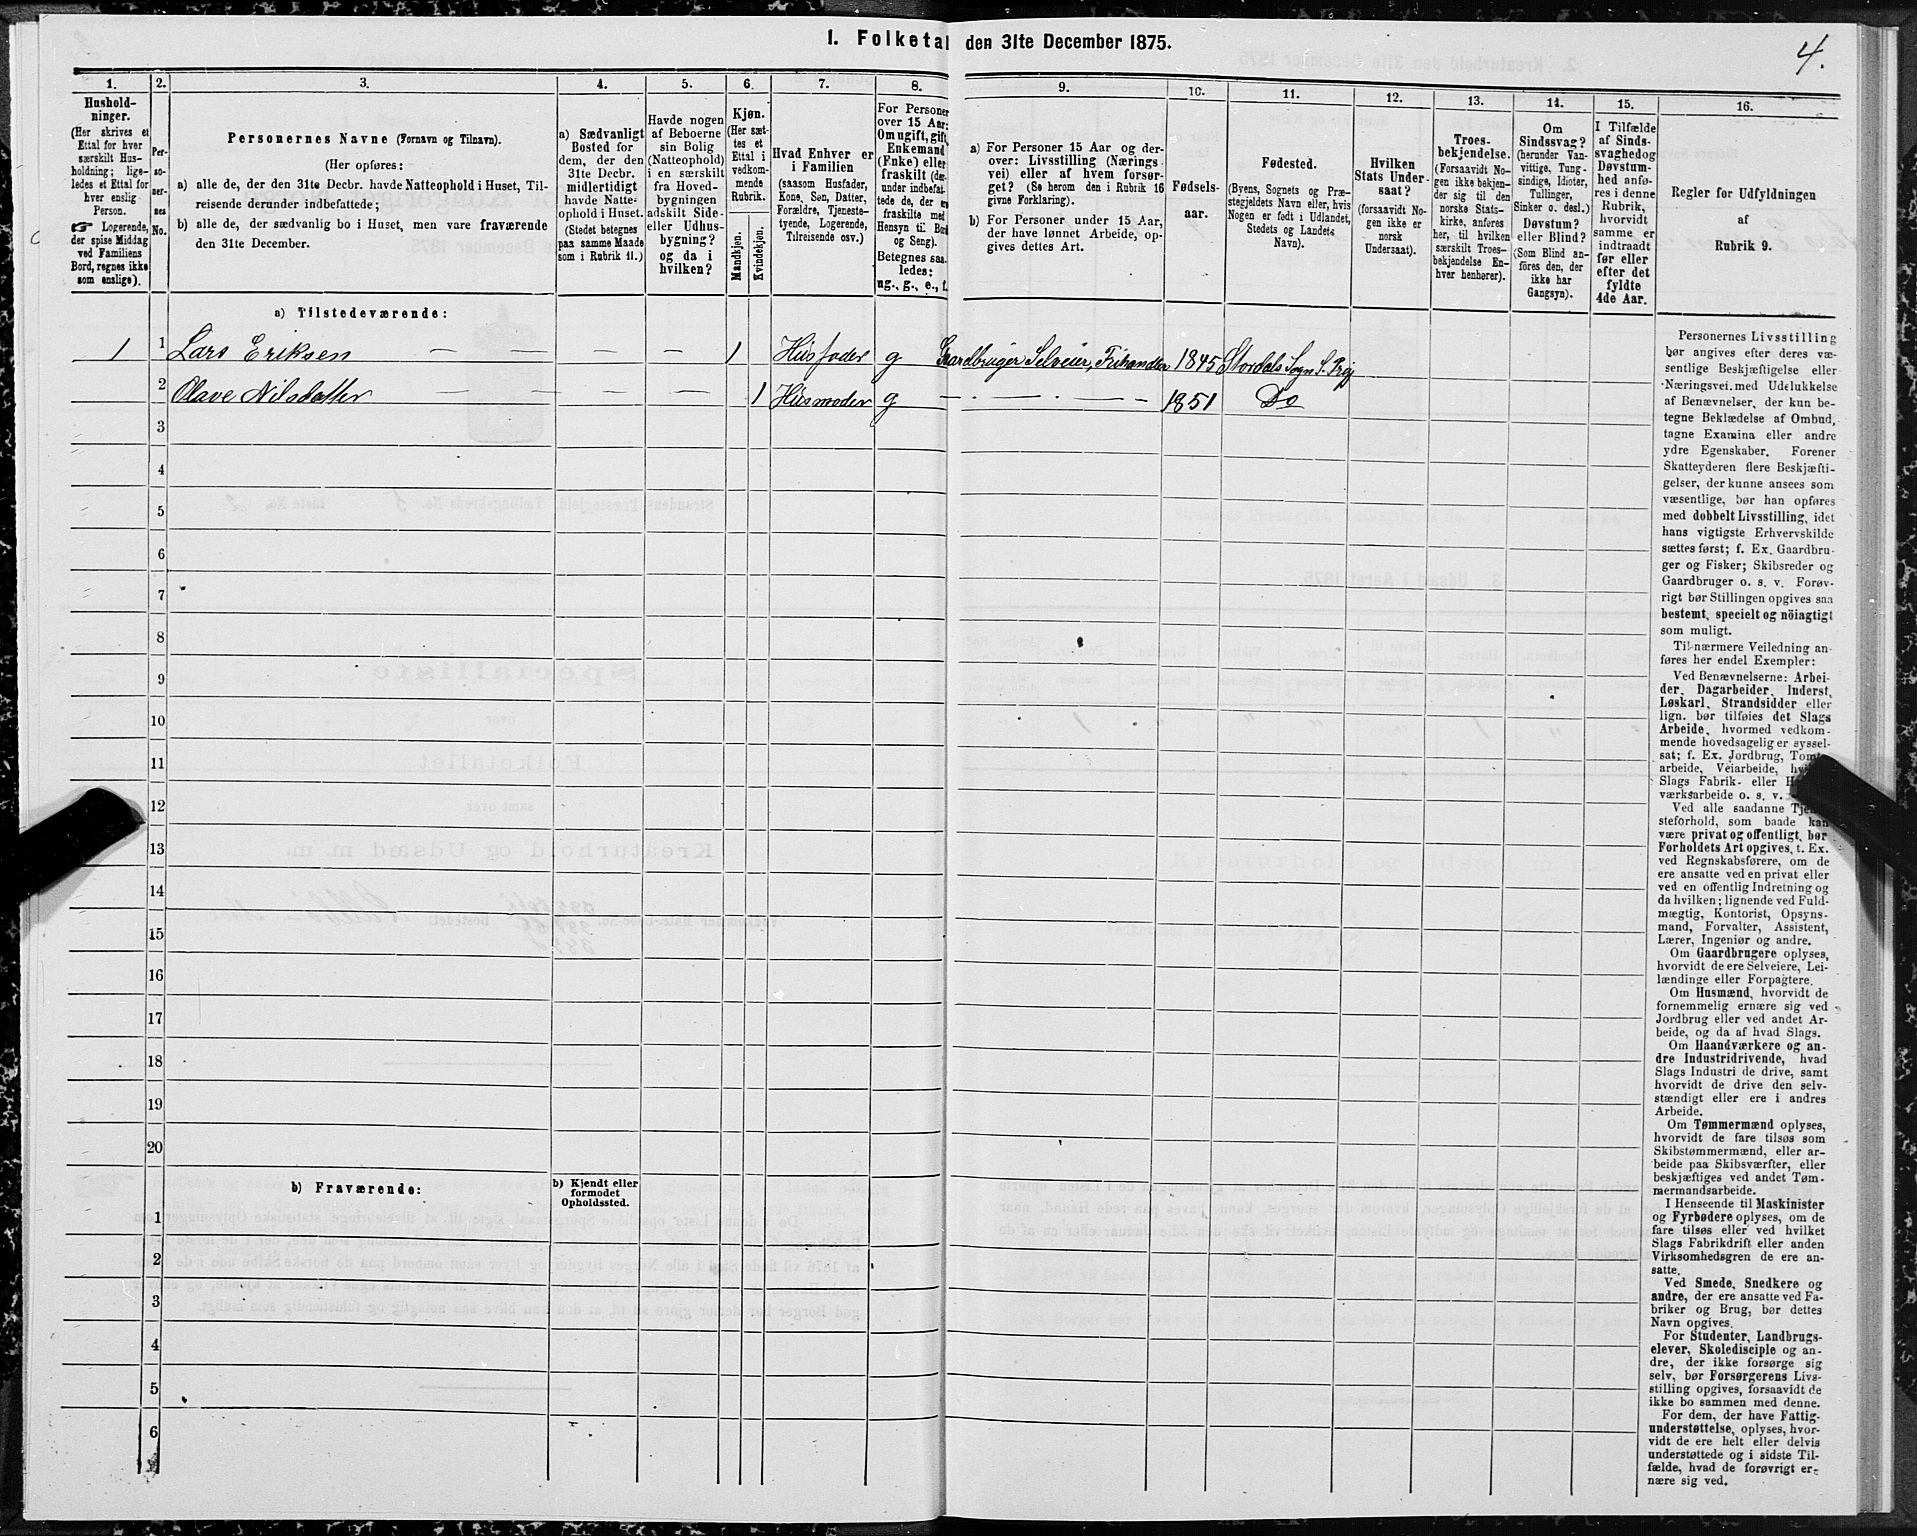 I. Folketal den 31te December 1875.
4.
1.
Hushold-
ninger.
(Her skrives et
Ettal for hver
særskilt Hus-
holdning; lige-
ledes et Ettal for
hver enslig
Person.
☞ Logerende,
der spise Middag
ved Familiens
Bord, regnes ikke
som enslige).
2.
Per-
so-
ner-
nes
No.
3.
Personernes Navne (Fornavn og Tilnavn).
(Her opføres:
a) alle de, der den 31te Decbr. havde Natteophold i Huset, Til-
reisende derunder indbefattede;
b) alle de, der sædvanlig bo i Huset, men vare fraværende
den 31te December.
4.
a) Sædvanligt
Bosted for
dem, der den
31te Decbr.
midlertidigt
havde Natte-
ophold i Huset.
(Stedet betegnes
paa samme Maade
som i Rubrik 11.)
5.
Havde nogen
af Beboerne
sin Bolig
(Natteophold)
i en særskilt
fra Hoved-
bygningen
adskilt Side-
eller Udhus-
bygning?
og da i
hvilken?
6.
Kjøn.
(Her sæt-
tes et
Ettal i
vedkom-
mende
Rubrik.
Mandkjøn.
Kvindekjøn.
7.
Hvad Enhver er
i Familien
(saasom Husfader,
Kone, Søn, Datter,
Forældre, Tjeneste-
tyende, Logerende,
Tilreisende osv.)
8.
For Personer
over 15 Aar:
Om ugift, gift,
Enkemand
(Enke) eller
fraskilt (der-
under indbefat-
tede de, der ere
fraskilte med
Hensyn til Bord
og Seng).
Betegnes saa-
ledes:
ug., g., e., f.
9.
a) For Personer 15 Aar og der-
over: Livsstilling (Nærings-
vei) eller af hvem forsør-
get? (Se herom den i Rubrik 16
givne Forklaring).
b) For Personer under 15 Aar,
der have lønnet Arbeide, op-
gives dettes Art.
10.
Fødsels-
aar.
11.
Fødested.
(Byens, Sognets og Præ-
stegjeldets Navn eller, hvis
Nogen er født i Udlandet,
Stedets og Landets
Navn).
12.
Hvilken
Stats Under-
saat?
(forsaavidt No-
gen ikke er
norsk
Undersaat).
13.
Troes-
bekjendelse.
(Forsaavidt No-
gen ikke bekjen-
der sig til den
norske Stats-
kirke, anføres
her, til hvilken
særskilt Troes-
bekjendelse En-
hver henhører).
14.
Om
Sindssvag?
(herunder Van-
vittige, Tung-
sindige, Idioter,
Tullinger,
Sinker o. desl.)
Døvstum?
eller Blind?
(Som Blind an-
føres den, der
ikke har
Gangsyn).
15.
I Tilfælde
af Sinds-
svaghed og
Døvstum-
hed anfø-
res i denne
Rubrik,
hvorvidt
samme er
indtraadt
før eller
efter det
fyldte
4de Aar.
16.
Regler for Udfyldningen
af
Rubrik 9.
a) Tilstedeværende:
1 1 Lars Eriksen — — — — 1 Husfader g Gaardbruger Selveier, Frihandler 1845 Stordals Sogn S. Prgj
2 Olave Nilsdatter — — — 1 Husmoder g — — — — 1851 Do
3
4
5
6
7
8
9
10
11
12
13
14
15
16
17
18
19
20
b) Fraværende:
b) Kjendt eller
formodet
Opholdssted.
1
2
3
4
5
6
Personernes Livsstilling
bør angives efter deres væ-
sentlige Beskjæftigelse eller
Næringsvei med Udelukkelse
af Benævnelser, der kun be-
tegne Beklædelse af Ombud,
tagne Examina eller andre
ydre Egenskaber. Forener
Skatteyderen flere Beskjæfti-
gelser, der kunne ansees som
væsentlige, bør han opføres
med dobbelt Livsstilling, idet
hans vigtigste Erhvervskilde
sættes først; f. Ex. Gaardbru-
ger og Fisker; Skibsreder og
Gaardbruger o. s. v. Forøv-
rigt bør Stillingen opgives saa
bestemt, specielt og nöiagtigt
som muligt.
Til nærmere Veiledning an-
føres her endel Exempler:
Ved Benævnelserne: Arbei-
der, Dagarbeider, Inderst,
Løskarl, Strandsidder eller
lign. bør tilføies det Slags
Arbeide, hvormed vedkom-
mende hovedsagelig er syssel-
sat; f. Ex. Jordbrug, Tomte-
arbeide, Veiarbeide, hvilket
Slags Fabrik- eller Haand-
værksarbeide o. s. v.
Ved alle saadanne Tjene-
steforhold, som baade kan
være privat og offentligt, bør
Forholdets Art opgives, t. Ex.
ved Regnskabsførere, om de
ere ansatte ved en privat eller
ved en offentlig Indretning og
da hvilken; lignende ved Fuld-
mægtig, Kontorist, Opsyns-
mand, Forvalter, Assistent,
Lærer, Ingeniør og andre.
Om Gaardbrugere oplyses,
hvorvidt de ere Selveiere, Lei-
lændinge eller Forpagtere.
Om Husmænd, hvorvidt de
fornemmelig ernære sig ved
Jordbrug eller ved andet Ar-
beide, og da af hvad Slags.
Om Haandværkere og an-
dre Industridrivende, hvad
Slags Industri de drive, samt
hvorvidt de drive den selv-
stændigt eller ere i andres
Arbeide.
Om Tømmermænd oplyses,
hvorvidt de fare tilsøs som
Skibstømmermænd, eller ar-
beide paa Skibsværfter, eller
beskjæftiges ved andet Tøm-
mermandsarbeide.
I Henseende til Maskinister
og Fyrbødere oplyses, om de
fare tilsøs eller ved hvilket
Slags Fabrikdrift eller anden
Virksomhedsgren de ere an-
satte.
Ved Smede, Snedkere og
andre, der ere ansatte ved Fa-
briker og Brug, bør dettes
Navn opgives.
For Studenter, Landbrugs-
elever, Skoledisciple og an-
dre, der ikke forsørge sig
selv, bør Forsørgerens Livs-
stilling opgives, forsaavidt de
ikke bo sammen med denne.
For dem, der have Fattig-
understøttelse, oplyses, hvor-
vidt de ere helt eller delvis
understøttede og i sidste Til-
fælde, hvad de forøvrigt er-
nære sig ved.